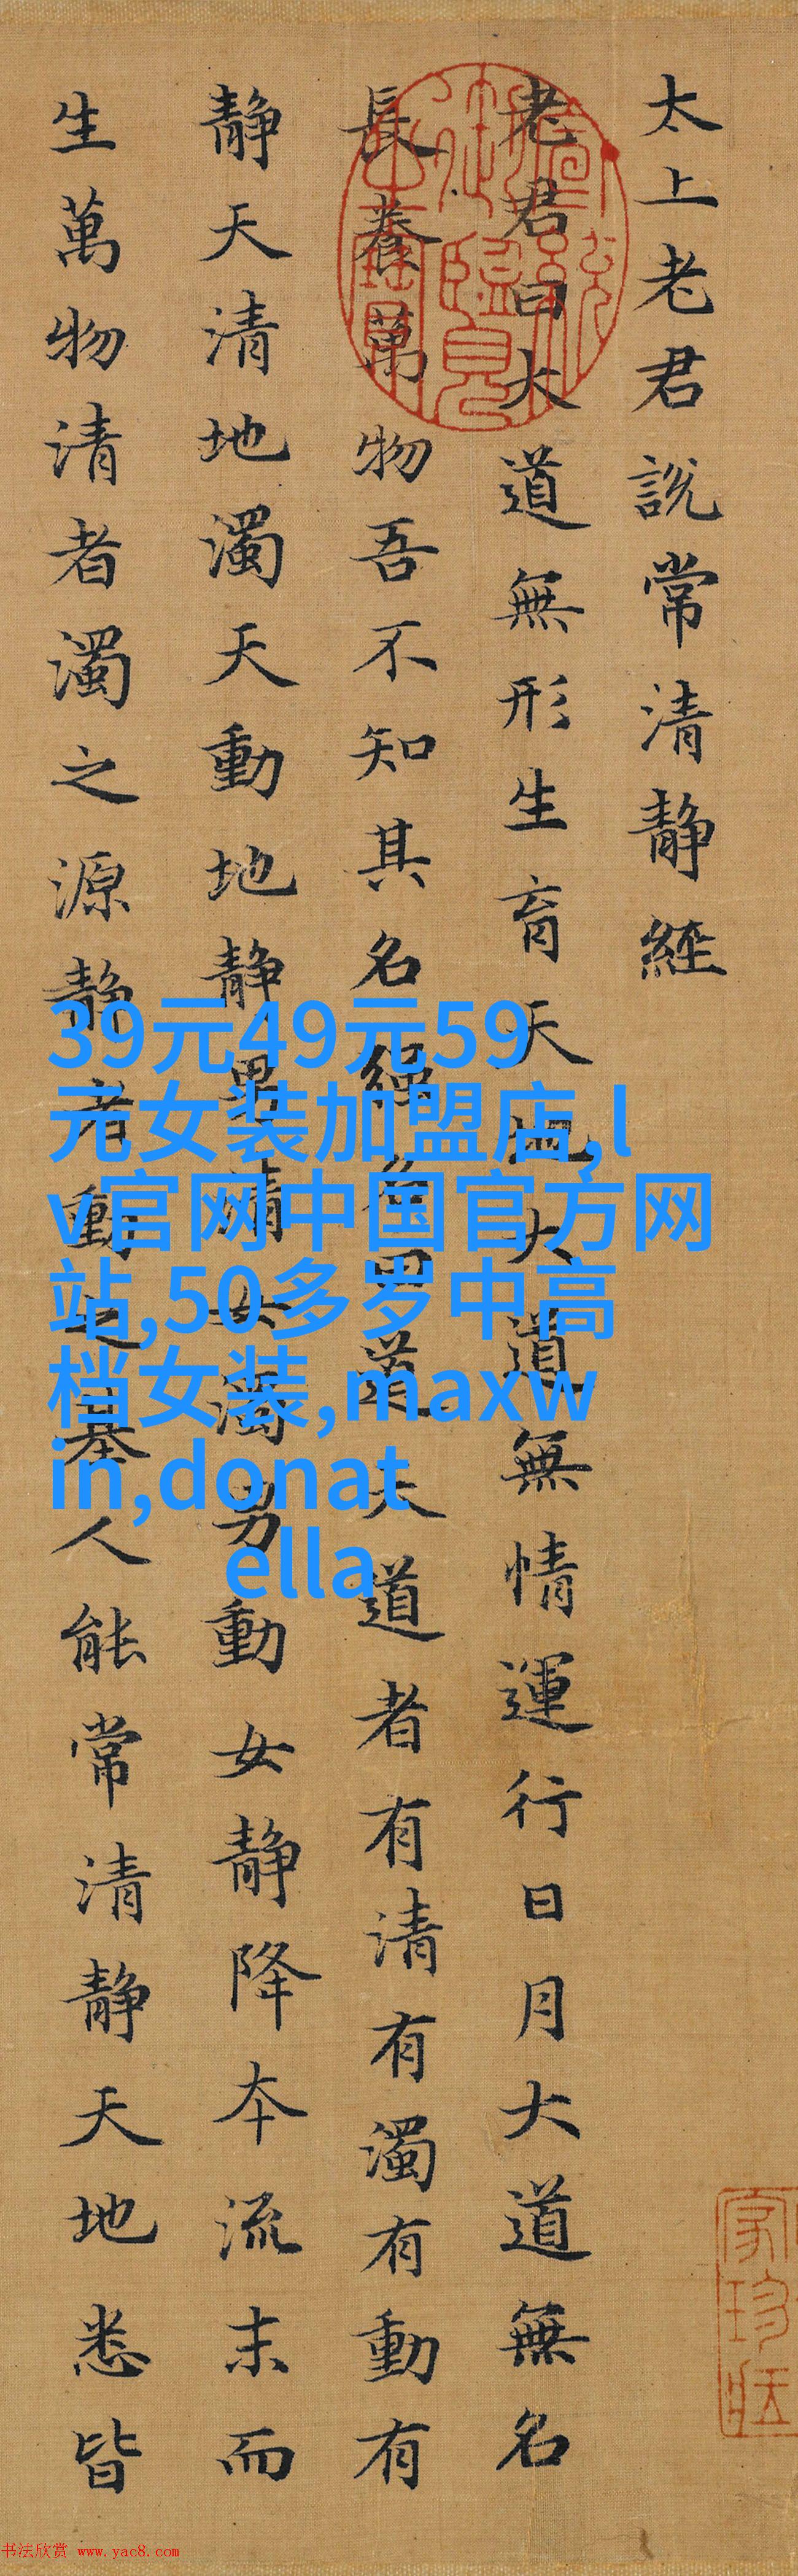 太上老君説常清静經
老君曰大道無形生育天地大道無情運行日月大道無名
長養萬物吾不知其名强名曰道夫道者有清有濁有動有
静天清地濁天動地静男清女濁男動女静降本流末而
生萬物清者濁之源静者動之基人能常清静天地悉皆
39元49元59
元女装加盟店,l
v官网中国官方网
站,50多岁中高
档女装,maxw
in,donat
ella
书法欣赏 www.yac8.com